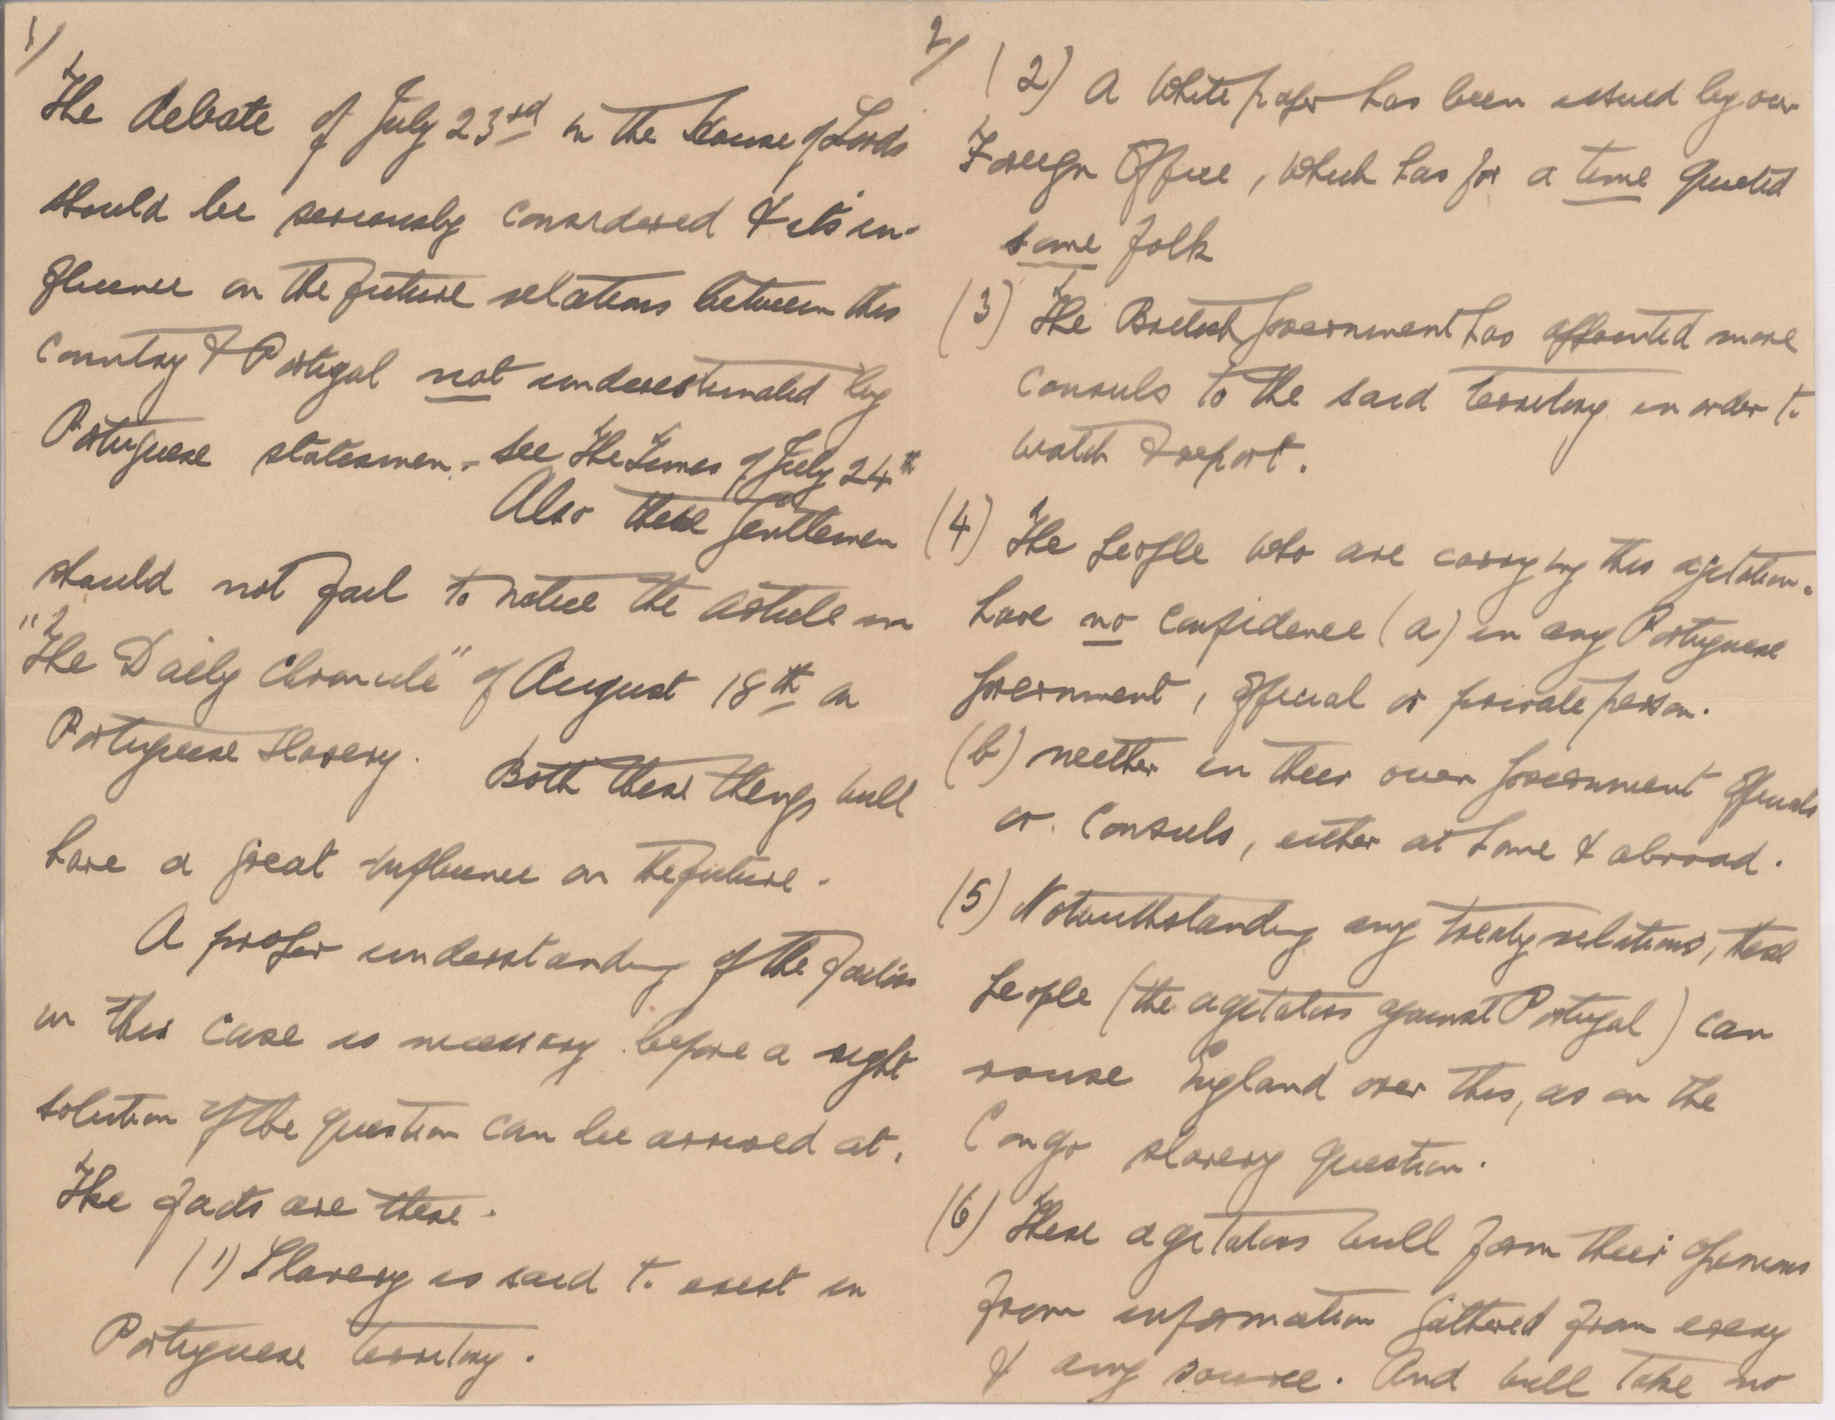 1/
The debate of July 23rd in the House of Lords
should be seriously considered & its in-
fluence on the future relations between this
country & Portugal not underestimated by
Portuguese statesmen. - see The Times of July 24th
Also these gentlemen
should not fail to notice the article in
"The Daily Chronicle" of August 18th on
Portuguese Slavery. Both these things will
have a great influence on the future.
A proper understanding of the facts
in this case is necessary before a right
solution of the question can be arrived at.
The facts are these.
(1) Slavery is said to exist in
Portuguese territory.
2/
(2) A White paper has been issued by our
Foreign Office, which has for a time quieted
some folk
(3) The British Government has appointed more
Consuls to the said territory in order to
watch & report.
(4) The people who are carrying this agitation.
have no confidence (a) in any Portuguese
Government, official or private person.
(b) neither in their own Government officials
or Consuls, either at home & abroad.
(5) Notwithstanding any treaty relations, these
people (the agitators against Portugal) can
rouse England over this, as on the
Congo slavery question.
(6) These agitators will form their opinions
from information gathered from every
& any source. And will take no